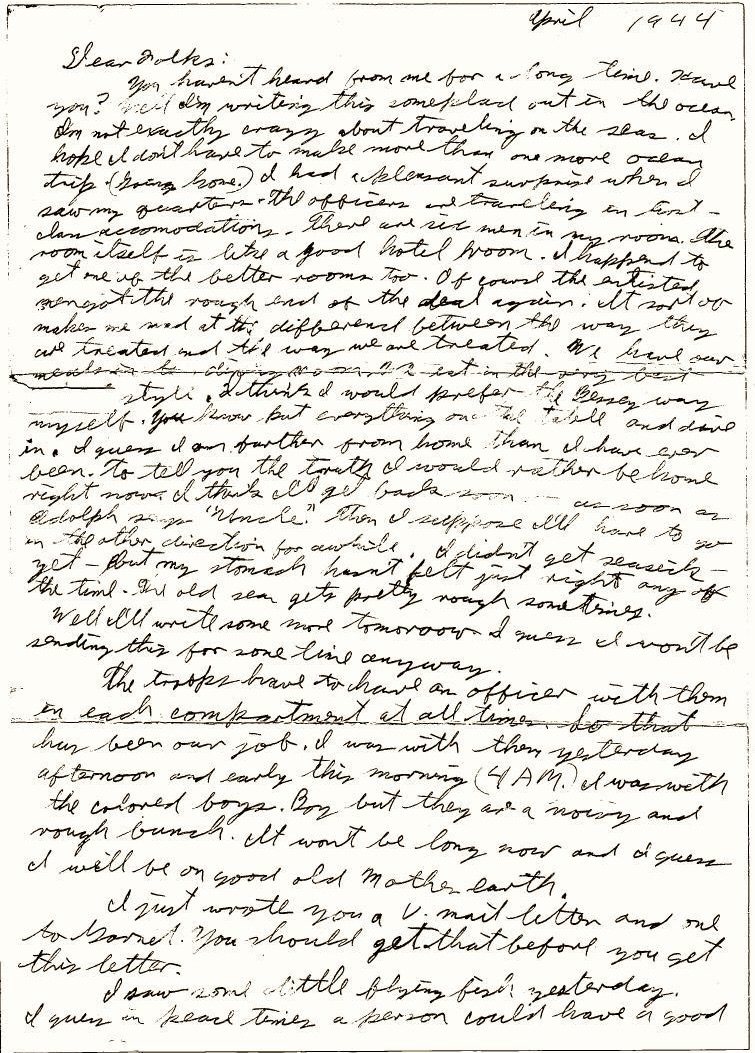 April 1944
Dear Folks:
You haven't heard from me for a long time. Have
you? Well I'm writing this someplace out in the ocean
I'm not exactly crazy about traveling on the seas. I
hope I don't have to make more than one more ocean
trip (Going home.) I had a pleasant surprise when I
saw my quarters - the officers are traveling in first -
class accomodations. There are six men in my room. The
room itself is like a good hotel room. I happend to
get one of the better rooms too. Of course the enlisted
men got the rough end of the deal again. It sort of
makes me mad at the difference between the way they
are treated and the way we are treated. We have our
meals in the dining room. We eat in the very best
style. I think I would prefer the Gessey way
myself. You know put everything on the table and dive
in. I guess I am further from home than I have ever
been. To tell you the truth I would rather be home
right now. I think I'll get back soon — as soon as
Adolph says "Uncle." Then I suppose I'll have to go
in the other direction for awhile. I didn't get seasick -
yet - but my stomach hasn't felt just right any of
the time. The old sea gets pretty rough sometimes.
Well I'll write some more tomorrow I guess I won't be
sending this for some time anyway.
The troops have to have an officer with them
in each compartment at all times. So that
has been our job. I was with them yesterday
afternoon and early this morning (4 AM.) I was with
the colored boys. Boy but they are a noisy and
rough bunch. It won't be long now and I guess
I will be on good old Mother earth.
I just wrote you a V. mail letter and one
to Garnet. You should get that before you get
this letter.
I saw some little flying fish yesterday.
I guess in peace times a person could have a good